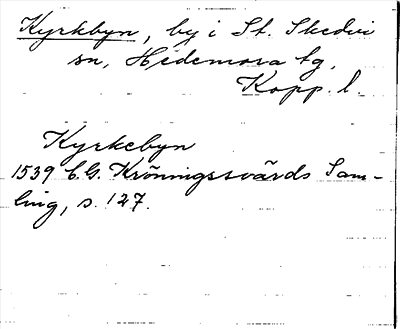 Kyrkbyn, by i St. Skedvi
sn, Hedemora tg,
Kopp. l.
Kyrkebyn
1539 C.G. Kröningssvärds Sam-
ling, s. 127.